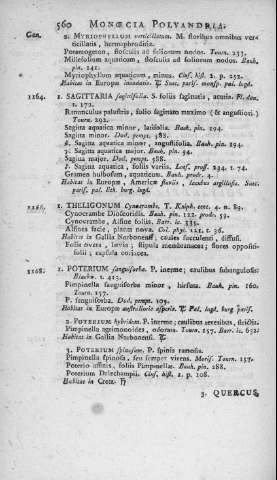 560 MONŒCIA POLYANDRIA.
Gen.
2. MYRIOPHYLLUM verticillatum. M. floribus omnibus verticillatis, hermaphroditis.
Potamogeton, flosculis ad foliorum nodos. Tourn. 233.
Millefolium aquaticum, flosculis ad foliorum nodos. Bauh. pin. 141.
Myriophyllum aquaticum, minus. Clus. hist. 2. p. 252.
Habitat in Europæ inundatis.
1164. 1. SAGITTARIA sagittifolia. S. foliis sagittatis, acutis. Fl. dan. t. 172.
Ranunculus palustris, folio sagittato maximo (& angustiori) Tourn. 292.
Sagitta aquatica minor, latifolia. Bauh. pin. 194.
Sagitta minor. Dod. pempt. 588.
Sagitta aquatica minor, angustifolia. Bauh. pin. 194.
Sagitta aquatica major. Bauh. pin. 94.
Sagitta major. Dod. pempt. 588.
Sagitta aquatica, foliis variis. Loes. pruss. 234. t. 74.
Gramen bulbosum, aquaticum. Bauh. prodr. 4.
Habitat in Europæ, Americæ fluviis, lacubus argillosis.
1. THELIGONUM Cynocrambe. T. Kniph. cent. 4. n. 89.
Cynocrambe Dioscoridis. Bauh. pin. 122. prodr. 59.
Cynocrambe, Alsine foliis. Barr. ic. 335.
Alsines facie, planta nova. Col. phyt. 121. t. 36.
Habitat in Gallia Narbonensi, caules succulenti, diffusi.
Folia ovata, lævia; stipula membranacea; flores oppositifolii; capsula coriacea.
1168. 1. POTERIUM sanguisorba. P. inerme; caulibus subangulosis. Blackw. t. 413.
Pimpinella sanguisorba minor, hirsuta. Bauh. pin. 160. Tourn. 157.
P. sanguisorba. Dod. pempt. 105.
Habitat in Europæ australioris asperis.
2. POTERIUM hybridum. P. inerme; caulibus teretibus, strictis.
Pimpinella agrimonoides, odorata. Tourn. 157. Barr. ic. 632.
Habitat in Gallia Narbonensi.
3. POTERIUM spinosum. P. spinis ramosis.
Pimpinella spinosa, seu semper virens. Moris. Tourn. 157.
Poterio affinis, foliis Pimpinellæ. Bauh. pin. 288.
Poterium Delechampii. Clus. hist. 2. p. 108.
Habitat in Creta.
3. QUERCUS,